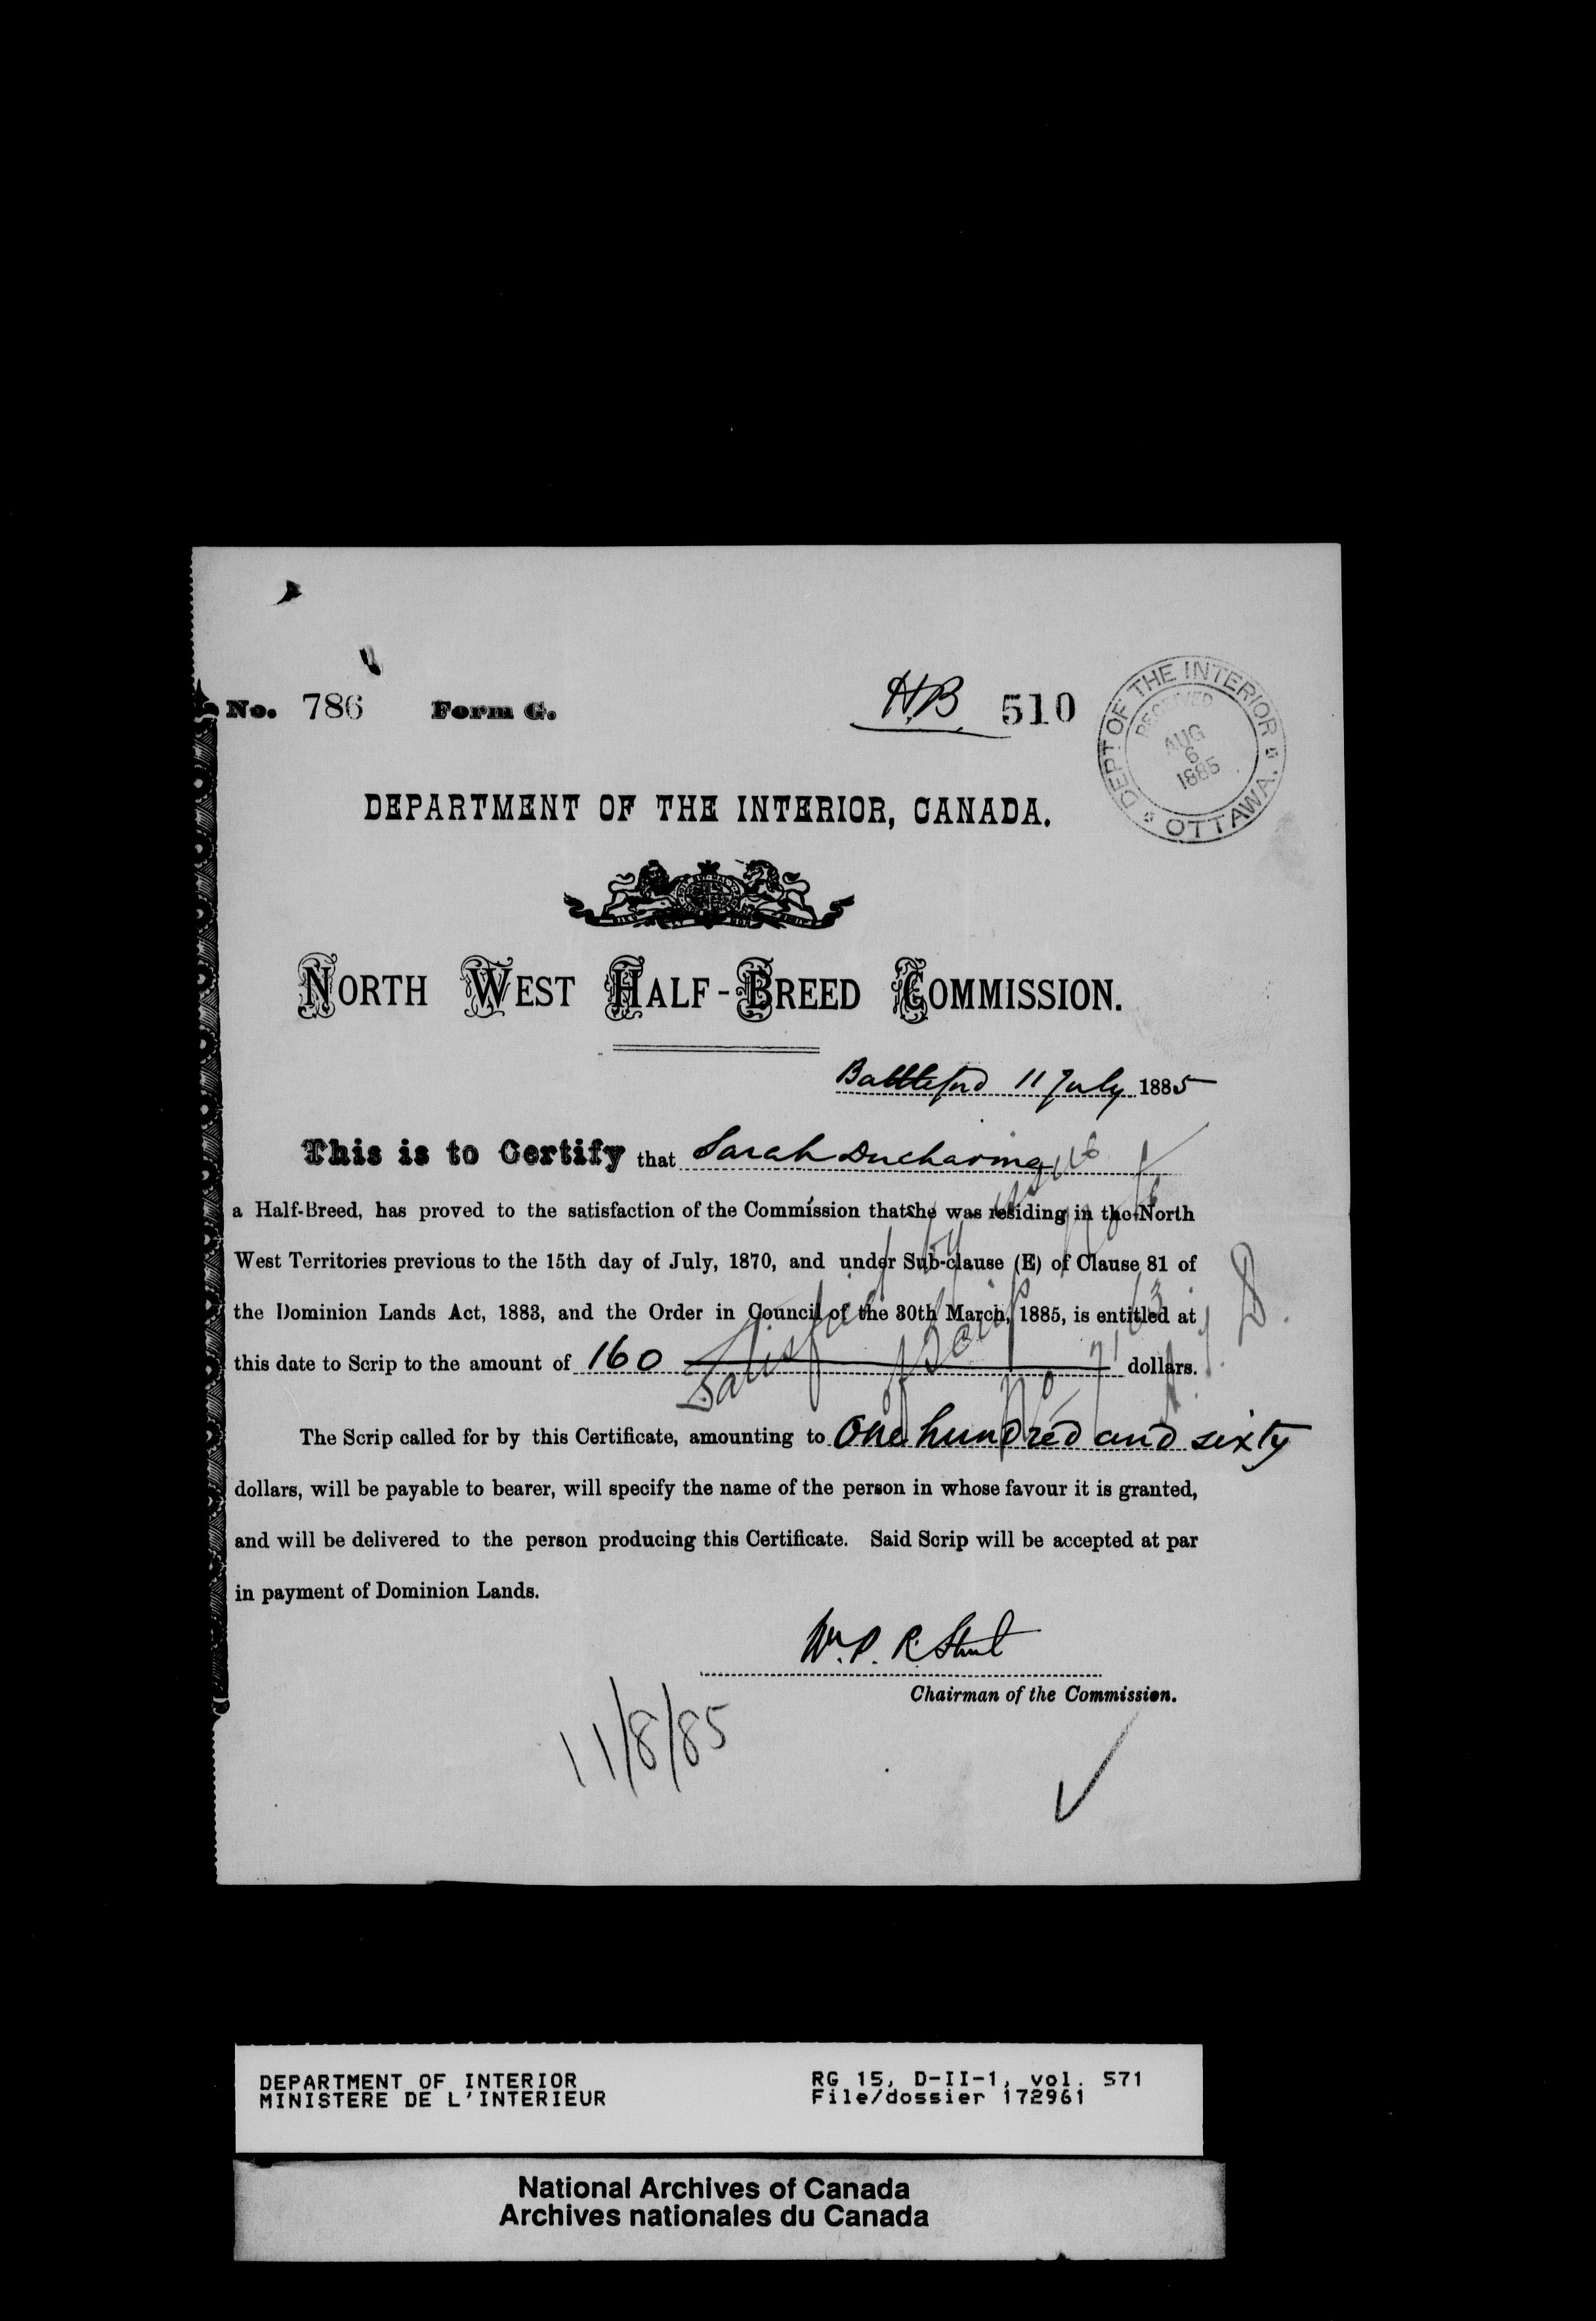 No. 786 Form G. H.B. 510
DEPT OF THE INTERIOR
RECEIVED
AUG
6
1885
OTTAWA.
DEPARTMENT OF THE INTERIOR, CANADA.
NORTH WEST HALF-BREED COMMISSION.
Battleford 11 July 1885
This is to Certify that Sarah Ducharme
a Half-Breed, has proved to the satisfaction of the Commission that she was residing in the North
West Territories previous to the 15th day of July, 1870, and under Sub-clause (E) of Clause 81 of
the Dominion Lands Act, 1883, and the Order in Council of the 30th March, 1885, is entitled at
this date to Scrip to the amount of 160 dollars.
Satisfied by
of Scrip
No
The Scrip called for by this Certificate, amounting to One hundred and sixty
dollars, will be payable to bearer, will specify the name of the person in whose favour it is granted,
and will be delivered to the person producing this Certificate. Said Scrip will be accepted at par
in payment of Dominion Lands.
Wm. P. R. Street
Chairman of the Commission.
11/8/85
DEPARTMENT OF INTERIOR RG 15, D-II-1, vol. 571
MINISTERE DE L'INTERIEUR File/dossier 172961
National Archives of Canada
Archives nationales du Canada